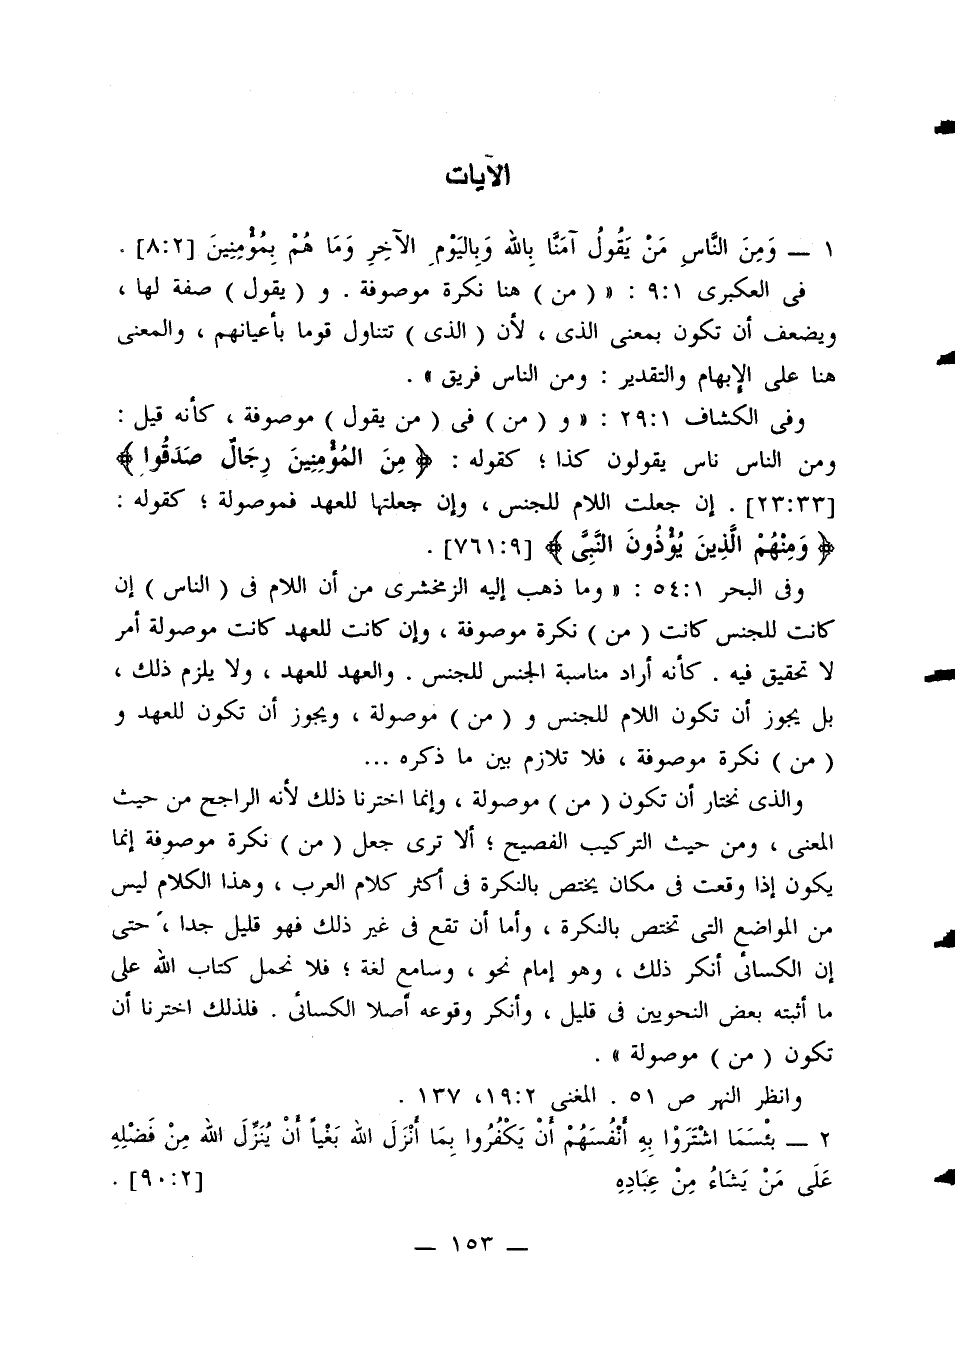 الآيات
١ — وَمِنَ النَّاسِ مَنْ يَقُولُ آمَنَّا بِاللهِ وَبِاليَوْمِ الآخِرِ وَمَا هُمْ بِمُؤْمِنِينَ [٨:٢] .
فى العكبرى ٩:١ : « ( من ) هنا نكرة موصوفة . و ( يقول ) صفة لها ،
ويضعف أن تكون بمعنى الذى ، لأن ( الذى ) تتناول قوما بأعيانهم ، والمعنى
هنا على الإبهام والتقدير : ومن الناس فريق » .
وفى الكشاف ٢٩:١ : « و ( من ) فى ( من يقول ) موصوفة ، كأنه قيل :
ومن الناس ناس يقولون كذا ؛ كقوله : ﴿ مِنَ المُؤْمِنِينَ رِجَالٌ صَدَقُوا ﴾
[٢٣:٣٣] . إن جعلت اللام للجنس ، وإن جعلتها للعهد فموصولة ؛ كقوله :
﴿ وَمِنْهُمْ الَّذِينَ يُؤْذُونَ النَّبِىَّ ﴾ [٧٦١:٩] .
وفى البحر ٥٤:١ : « وما ذهب إليه الزمخشرى من أن اللام فى ( الناس ) إن
كانت للجنس كانت ( من ) نكرة موصوفة ، وإن كانت للعهد كانت موصولة أمر
لا تحقيق فيه . كأنه أراد مناسبة الجنس للجنس . والعهد للعهد ، ولا يلزم ذلك ،
بل يجوز أن تكون اللام للجنس و ( من ) موصولة ، ويجوز أن تكون للعهد و
( من ) نكرة موصوفة ، فلا تلازم بين ما ذكره ...
والذى نختار أن تكون ( من ) موصولة ، وإنما اخترنا ذلك لأنه الراجح من حيث
المعنى ، ومن حيث التركيب الفصيح ؛ ألا ترى جعل ( من ) نكرة موصوفة إنما
يكون إذا وقعت فى مكان يختص بالنكرة فى أكثر كلام العرب ، وهذا الكلام ليس
من المواضع التى تختص بالنكرة ، وأما أن تقع فى غير ذلك فهو قليل جدا ، حتى
إن الكسائى أنكر ذلك ، وهو إمام نحو ، وسامع لغة ؛ فلا نحمل كتاب الله على
ما أثبته بعض النحويين فى قليل ، وأنكر وقوعه أصلا الكسائى . فلذلك اخترنا أن
تكون ( من ) موصولة » .
وانظر النهر ص ٥١ . المغنى ١٩:٢، ١٣٧ .
٢ — بِئْسَمَا اشْتَرَوْا بِهِ أَنْفُسَهُمْ أَنْ يَكْفُرُوا بِمَا أَنْزَلَ اللهُ بَغْياً أَنْ يُنَزِّلَ اللهُ مِنْ فَضْلِهِ
عَلَى مَنْ يَشَاءُ مِنْ عِبَادِهِ [٩٠:٢] .
— ١٥٣ —